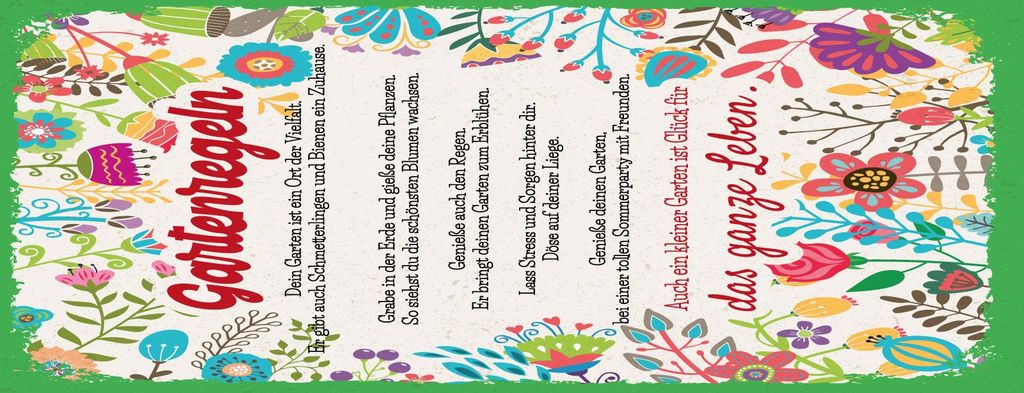 Gartenregeln
Dein Garten ist ein Ort der Vielfalt.
Er gibt auch Schmetterlingen und Bienen ein Zuhause.
Grabe in der Erde und gieße deine Pflanzen.
So siehst du die schönsten Blumen wachsen.
Genieße auch den Regen.
Er bringt deinen Garten zum Erblühen.
Lass Stress und Sorgen hinter dir.
Döse auf deiner Liege.
Genieße deinen Garten,
bei einer tollen Sommerparty mit Freunden.
Auch ein kleiner Garten ist Glück für
das ganze Leben.